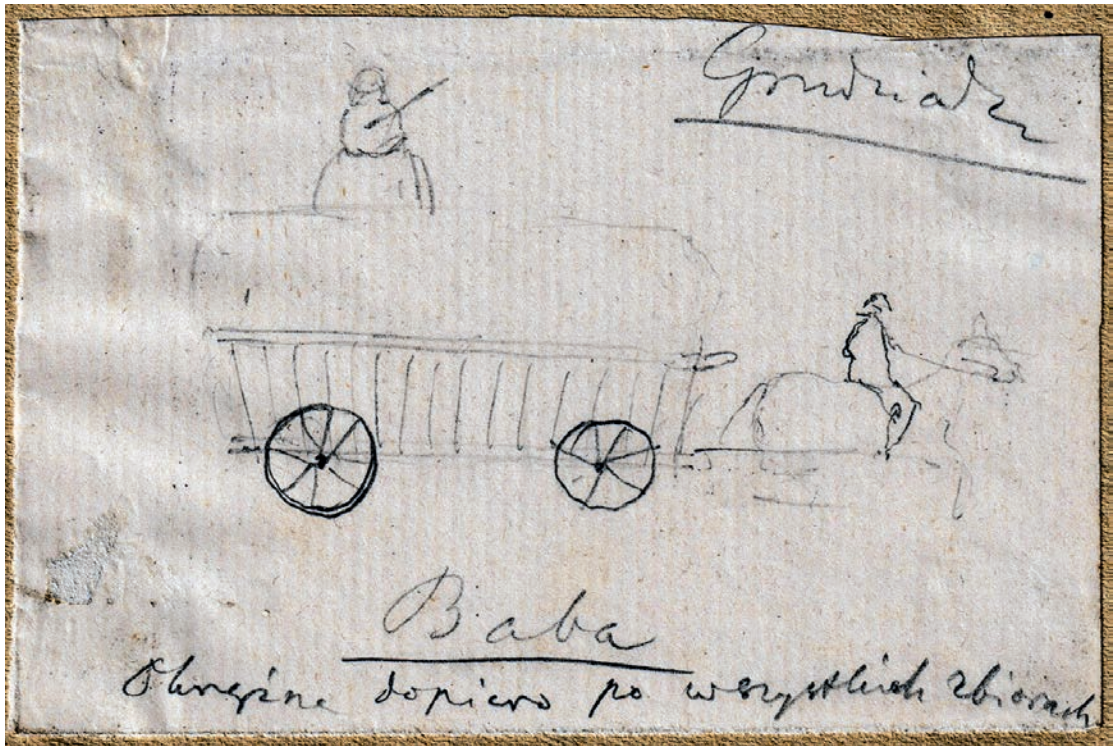 Grudziadz
Baba
Okrężne dopiero po wszystkich zbiorach